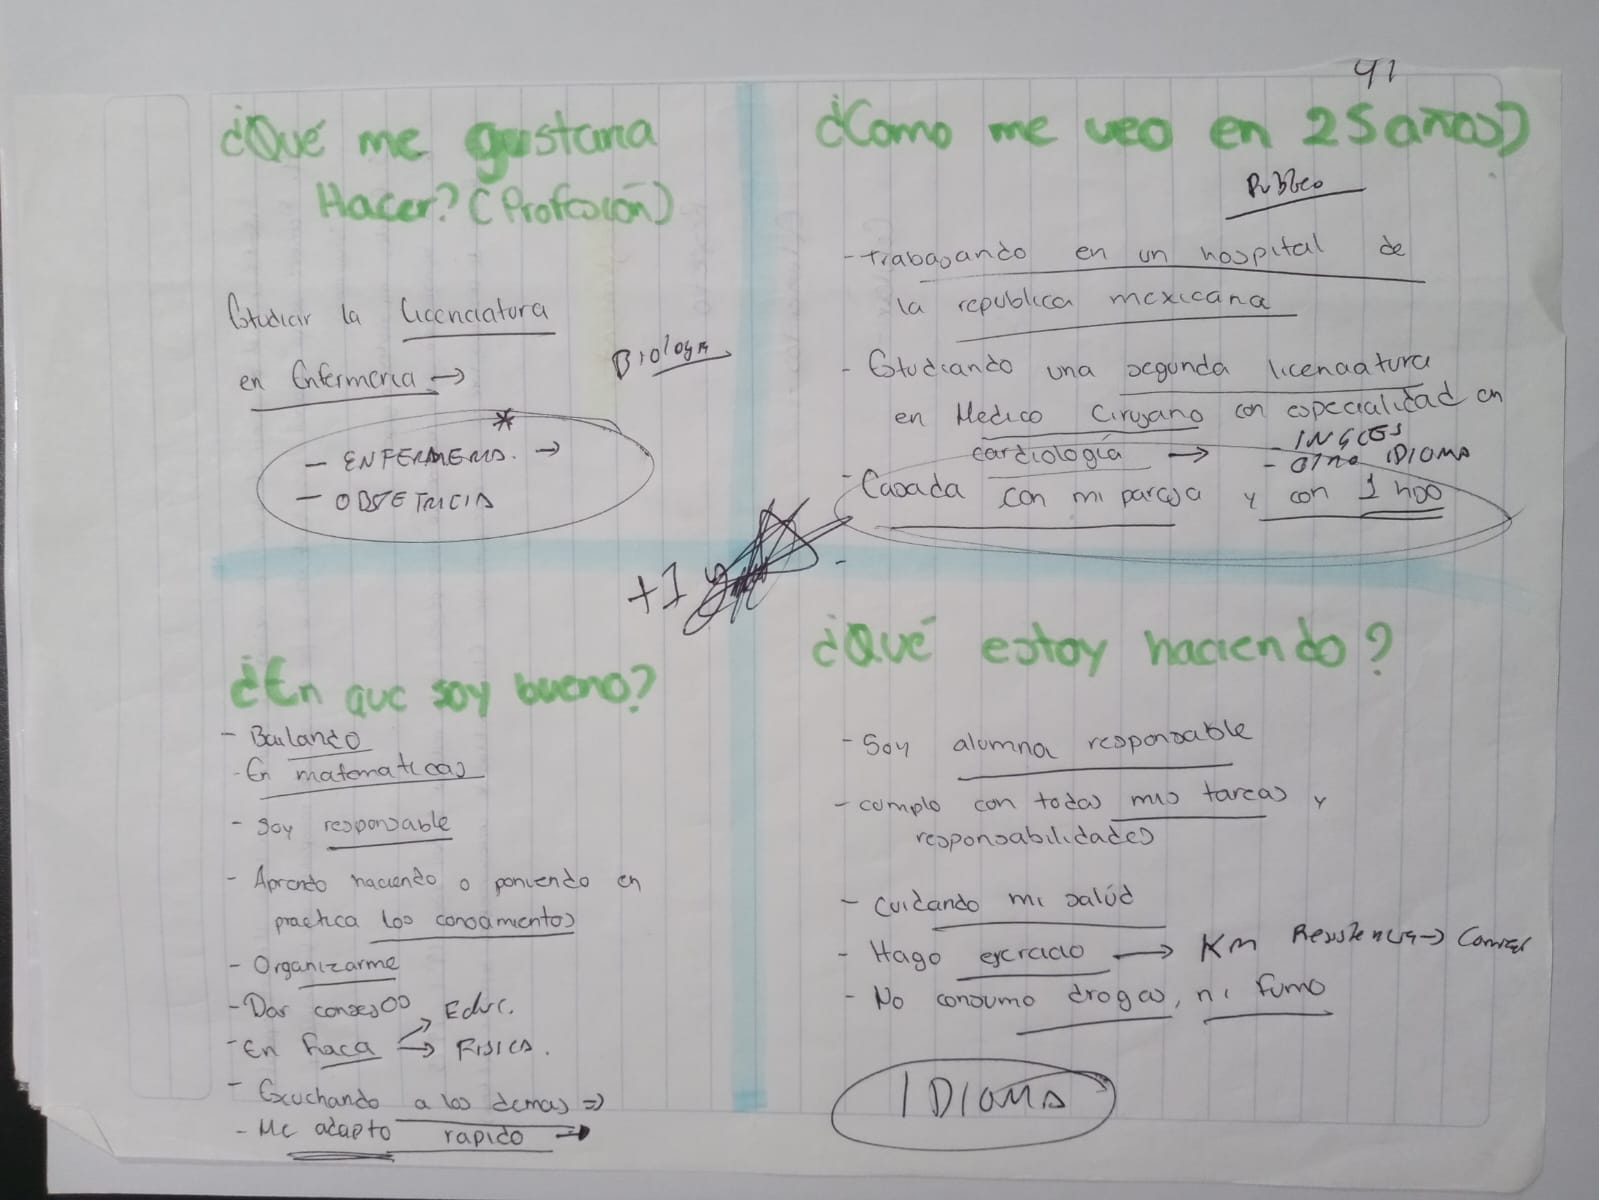 ¿Qué me gustaria
Hacer? (Profesión)
Estudiar la licenciatura
en Enfermeria →
Biologia
*
- ENFERMERIA. →
- OBSTETRICIA
41
¿Como me veo en 25 años)
Publico
- trabajando en un hospital de
la republica mexicana
- Estudiando una segunda licenciatura
en Medico Cirujano con especialidad en
cardiología →
- INGLES
- OTRO IDIOMA
- Casada con mi pareja y con 1 hijo
+1
-
¿En que soy bueno?
- Bailando
- En matematicas
- Soy responsable
- Aprendo haciendo o poniendo en
practica los conocimientos
- Organizarme
- Dar consejos
- En fisica → Educ.
→ FISICA.
- Escuchando a los demas ⇒
- Me adapto rapido →
¿Qué estoy haciendo?
- Soy alumna responsable
- cumplo con todas mis tareas y
responsabilidades
- Cuidando mi salúd
- Hago ejercicio → KM Resistencia → Correr
- No consumo drogas, ni fumo
IDIOMA